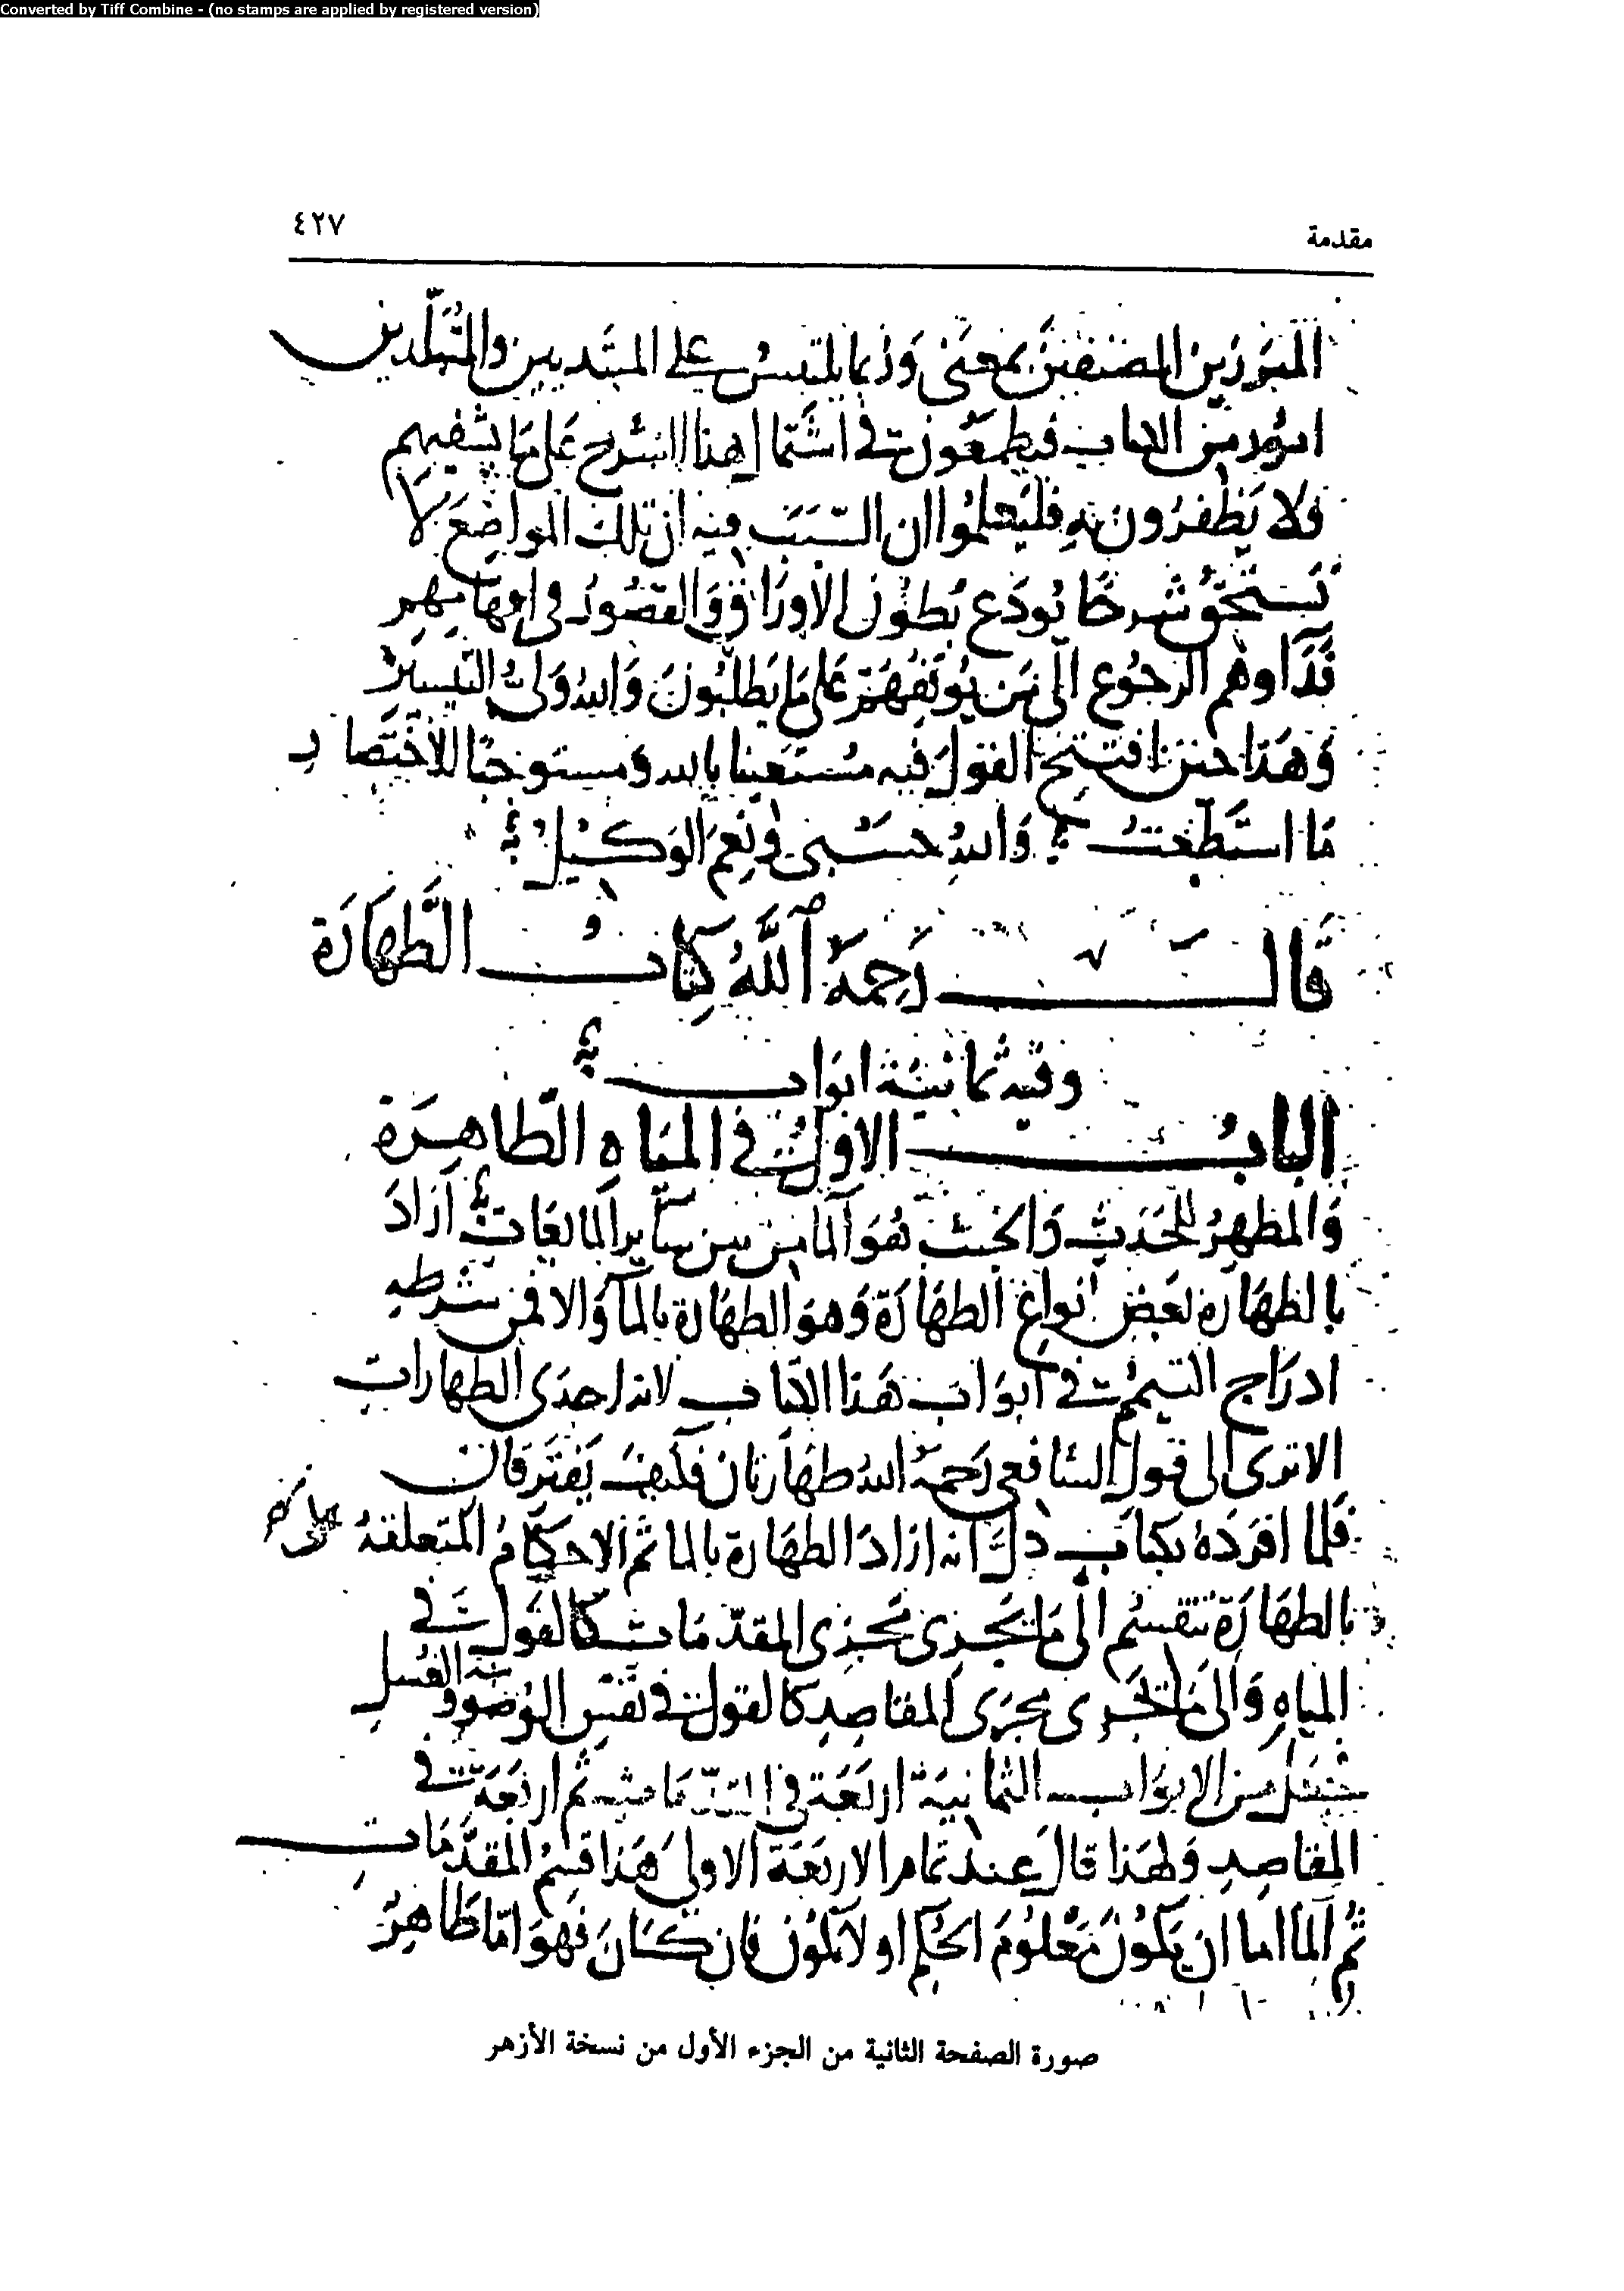 Converted by Tiff Combine - (no stamps are applied by registered version)
مقدمة ٤٢٧
المبرزين المصنفين بمعنى وربما يلتبس على المبتديين والمتبلدين
امور من الكتاب فيطمعون في اشتمال هذا الشرح على ما يشفيهم
ولا يظفرون به فليعلموا ان السبب فيه ان تلك المواضع لا
تستحق شرحًا يودع بطون الاوراق والقصور في افهامهم
فدَاوهم الرجوع الى من يوقفهم على ما يطلبون والله ولي التيسير
وهذا حين افتتح القول فيه مستعينا بالله ومستوجبا للاختصار
ما استطعت والله حسبي ونعم الوكيل
قال رحمه الله كتاب الطهارة
وفيه ثمانية ابواب
الباب الاول في المياه الطاهرة
والمطهر للحدث والخبث هو الما من بين ساير المايعات اراد
بالطهارة بعض انواع الطهارة وهو الطهارة بالما والا فمن شرطه
ادراج التيمم في ابواب هذا الكتاب لانه احدى الطهارات
الا ترى الى قول الشافعي رحمه الله طهارتان فكيف يفترقان
فلما افرده بكتاب دل انه اراد الطهارة بالما ثم الاحكام المتعلقة
بالطهارة تنقسم الى ما يجري مجرى المقدمات كالقول في
المياه والى ما يجري مجرى المقاصد كالقول في نفس الوضوء والغسل
فجعل من الابواب الثمانية اربعة في المقدمات ثم اربعة في
المقاصد ولهذا قال عند تمام الاربعة الاولى هذا قسم المقدمات
ثم الما اما ان يكون معلوم الحكم او لا يكون فان كان فهو اما طاهر
صورة الصفحة الثانية من الجزء الأول من نسخة الأزهر